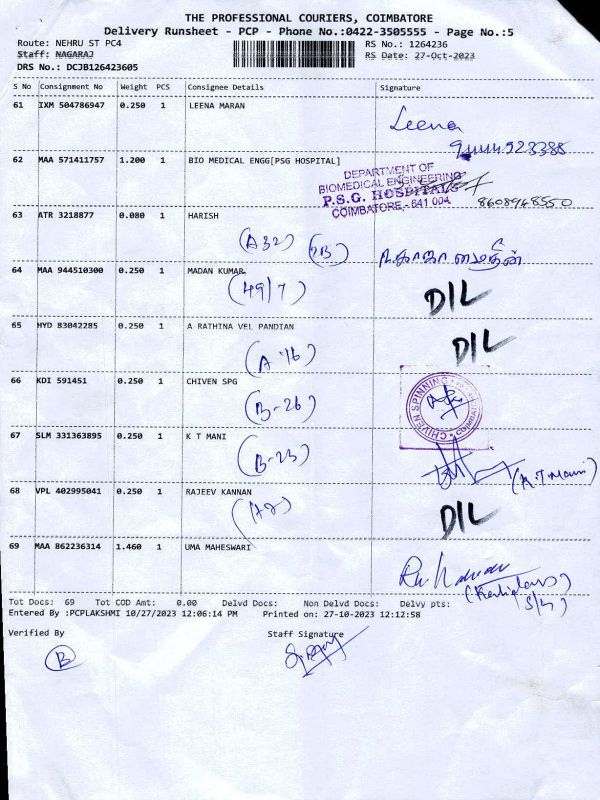 THE PROFESSIONAL COURIERS, COIMBATORE
Delivery Runsheet - PCP - Phone No.:0422-3505555 - Page No.:5
Route: NEHRU ST PC4 RS No.: 1264236
Staff: NAGARAJ RS Date: 27-Oct-2023
DRS No.: DCJB126423605
S No Consignment No Weight PCS Consignee Details Signature
61 IXM 504786947 0.250 1 LEENA MARAN
Leena
62 MAA 571411757 1.200 1 BIO MEDICAL ENGG[PSG HOSPITAL]
DEPARTMENT OF
BIOMEDICAL ENGINEERING
P.S.G. HOSPITALS
COIMBATORE - 641 004
8608948550
63 ATR 3218877 0.080 1 HARISH
(A32)
64 MAA 944510300 0.250 1 MADAN KUMAR
(49/7) DIL
65 HYD 83042285 0.250 1 A RATHINA VEL PANDIAN
(A-16) DIL
66 KDI 591451 0.250 1 CHIVEN SPG
(B-26) CHIVEN SPINNING
67 SLM 331363895 0.250 1 K T MANI
(B-23) (K.T. Mani)
68 VPL 402995041 0.250 1 RAJEEV KANNAN
DIL
69 MAA 862236314 1.460 1 UMA MAHESWARI
Tot Docs: 69 Tot COD Amt: 0.00 Delvd Docs: Non Delvd Docs: Delvy pts:
Entered By :PCPLAKSHMI 10/27/2023 12:06:14 PM Printed on: 27-10-2023 12:12:58
Verified By Staff Signature
B